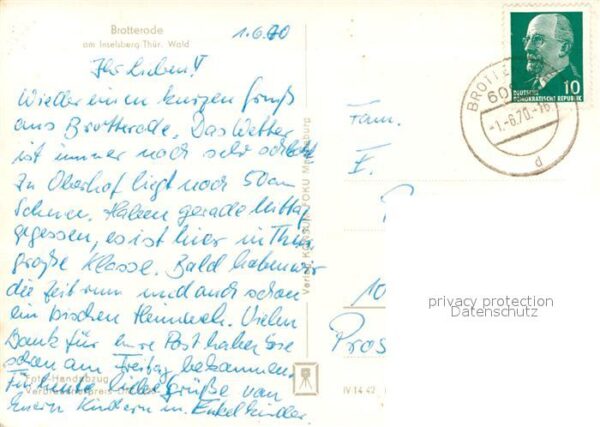 Brotterode
am Inselsberg Thür. Wald
1.6.70
Ihr Lieben!
Wieder einen kurzen Gruß
aus Brotterode. Das Wetter
ist immer noch sehr schlecht
In Oberhof liegt noch 50 cm
Schnee. Haben gerade Mittag
gegessen, es ist hier in Thür.
große Klasse. Bald haben wir
die Zeit rum und auch schon
ein bischen Heimweh. Vielen
Dank für eure Post haben sie
schon am Freitag bekommen.
Für heute liebe Grüße von
Euern Kindern u. Enkelkinder.
Foto-Handabzug
Verlag KONSUM-FOKU Magdeburg
IV 14 42
Fam.
F.
10
Pros
BROTTE
60
-1.-6.70.-16
d
10
DEUTSCHE
DEMOKRATISCHE REPUBLIK
privacy protection
Datenschutz